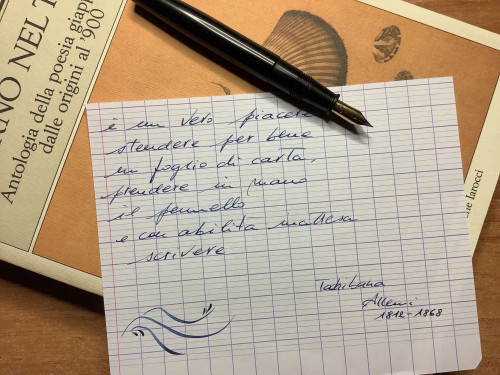 RNO NEL T
Antologia della poesia giapp
dalle origini al '900
è un vero piacere
stendere per bene
un foglio di carta,
prendere in mano
il pennello
e con abilità inattesa
scrivere
1812-1868
Iarocci